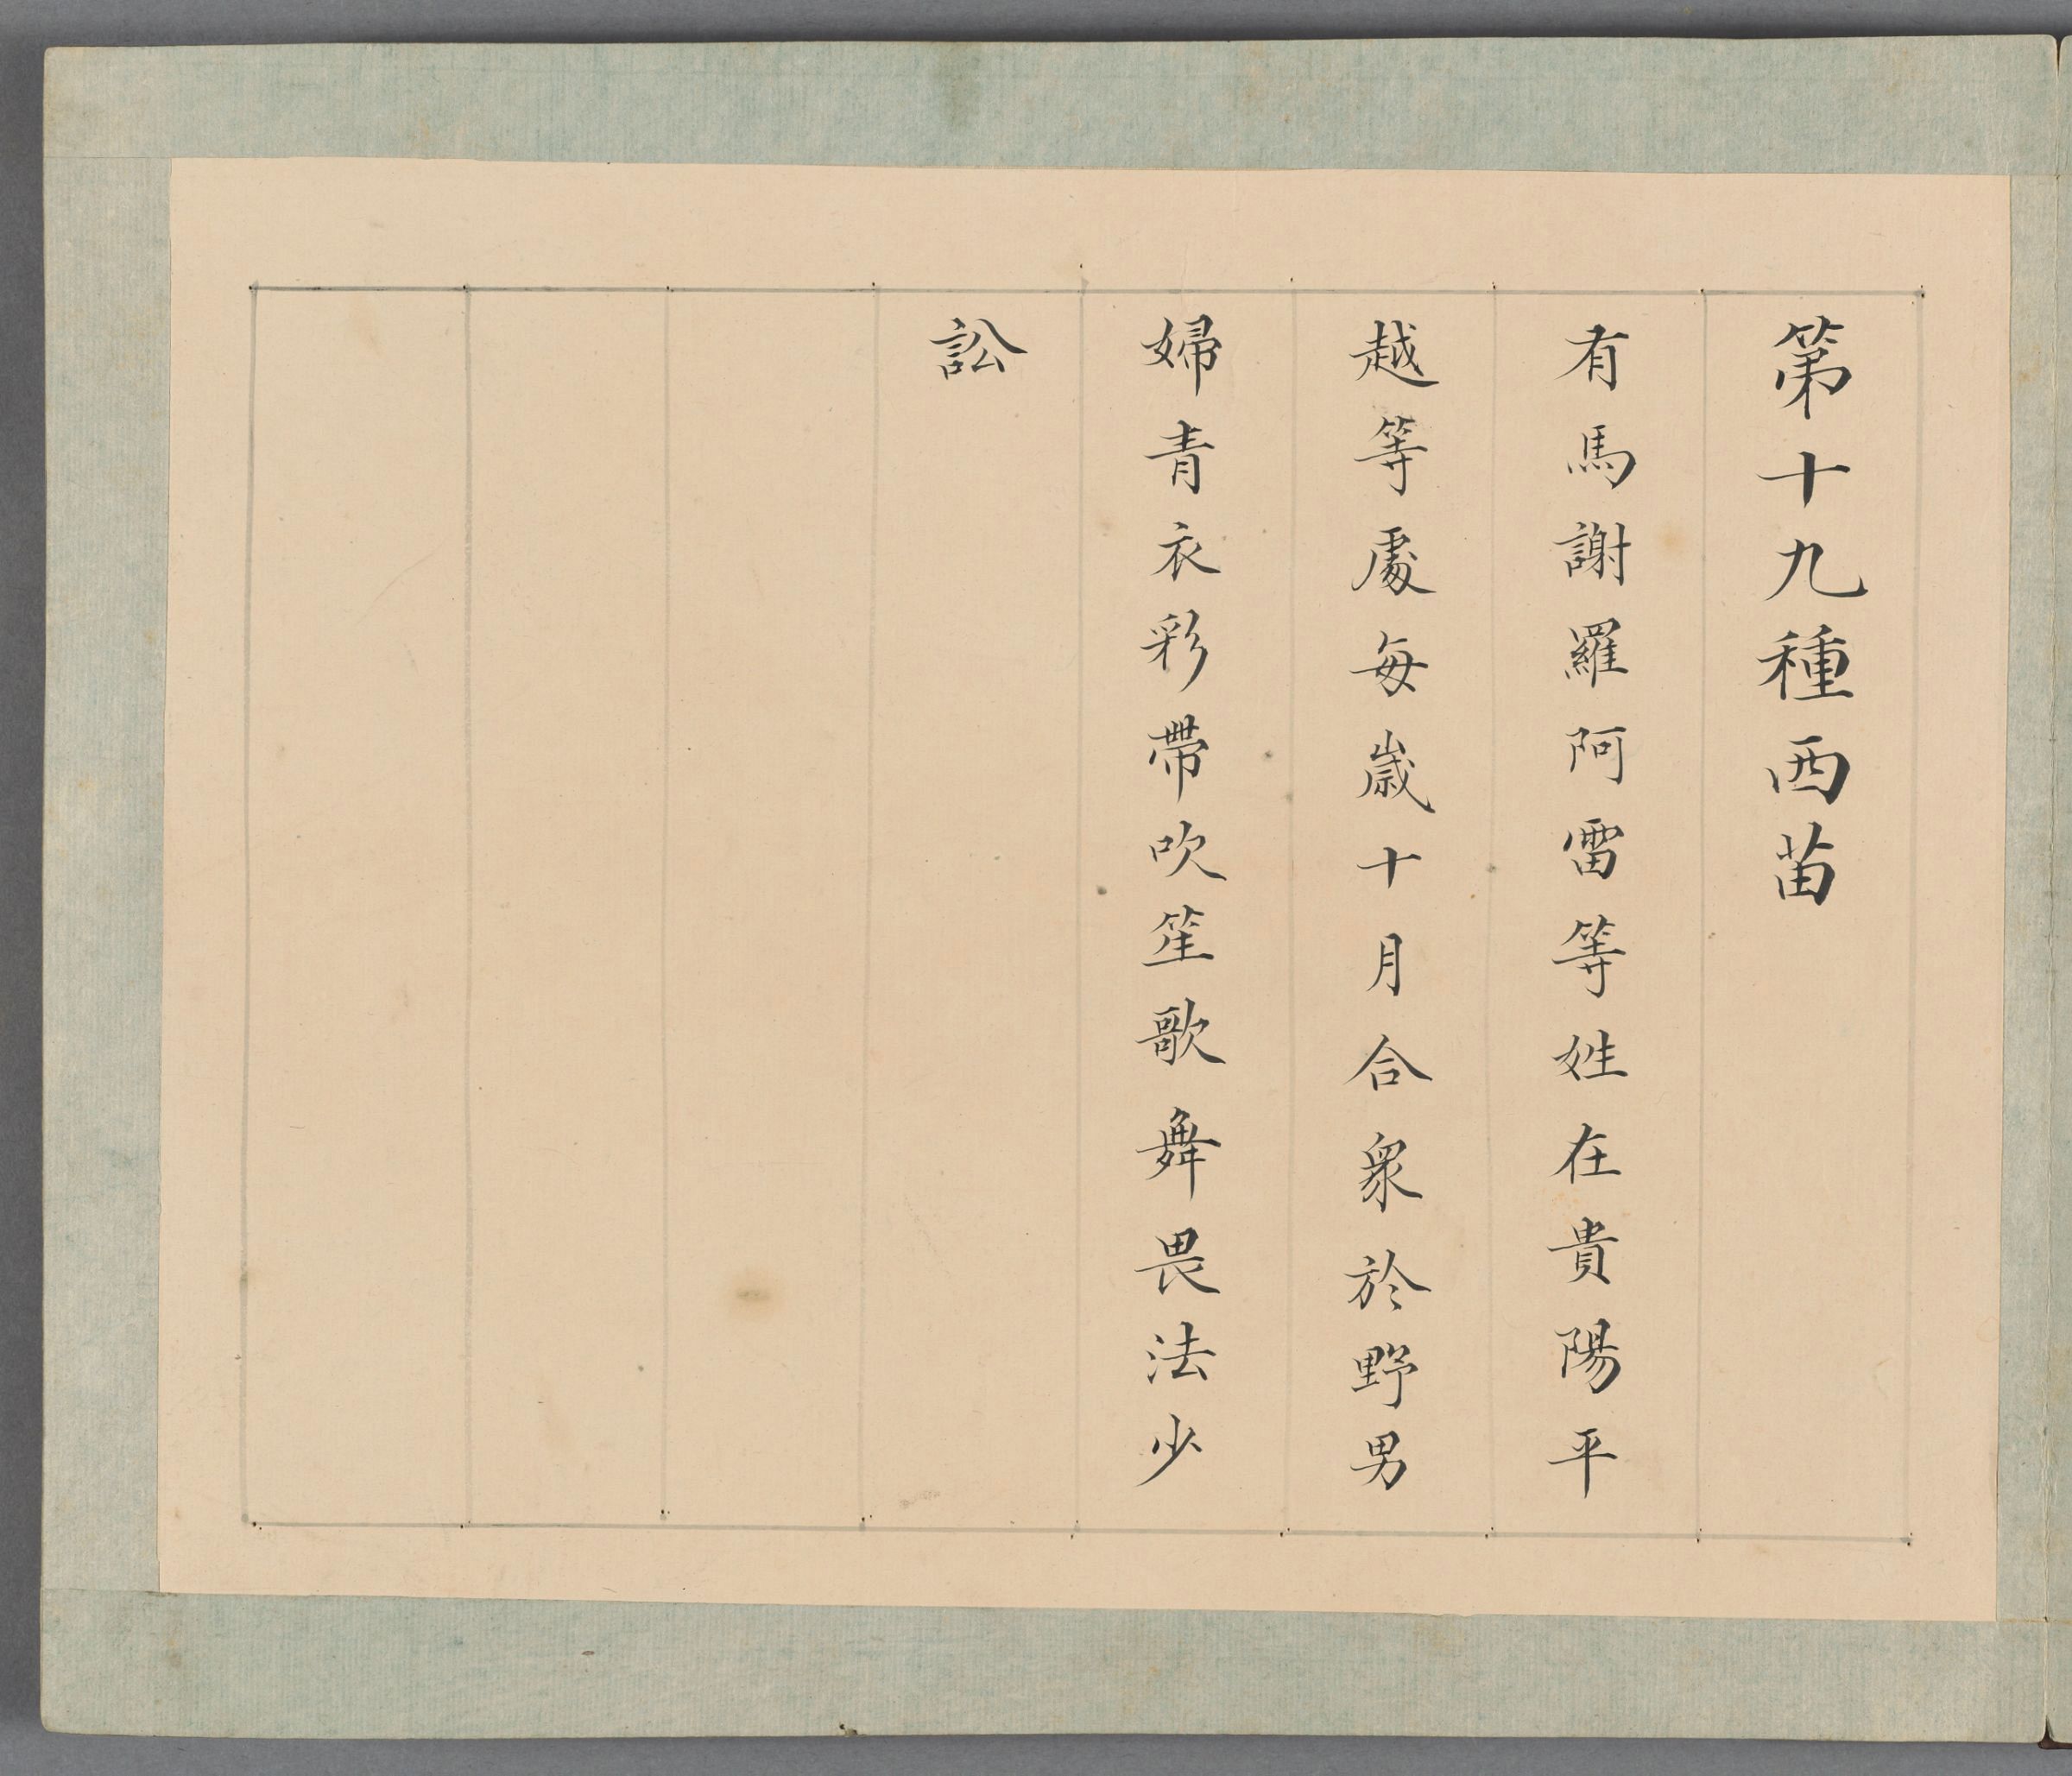 第十九種西苗
有馬謝羅阿雷等姓在貴陽平
越等處每歲十月合衆於野男
婦青衣彩帶吹笙歌舞畏法少
訟